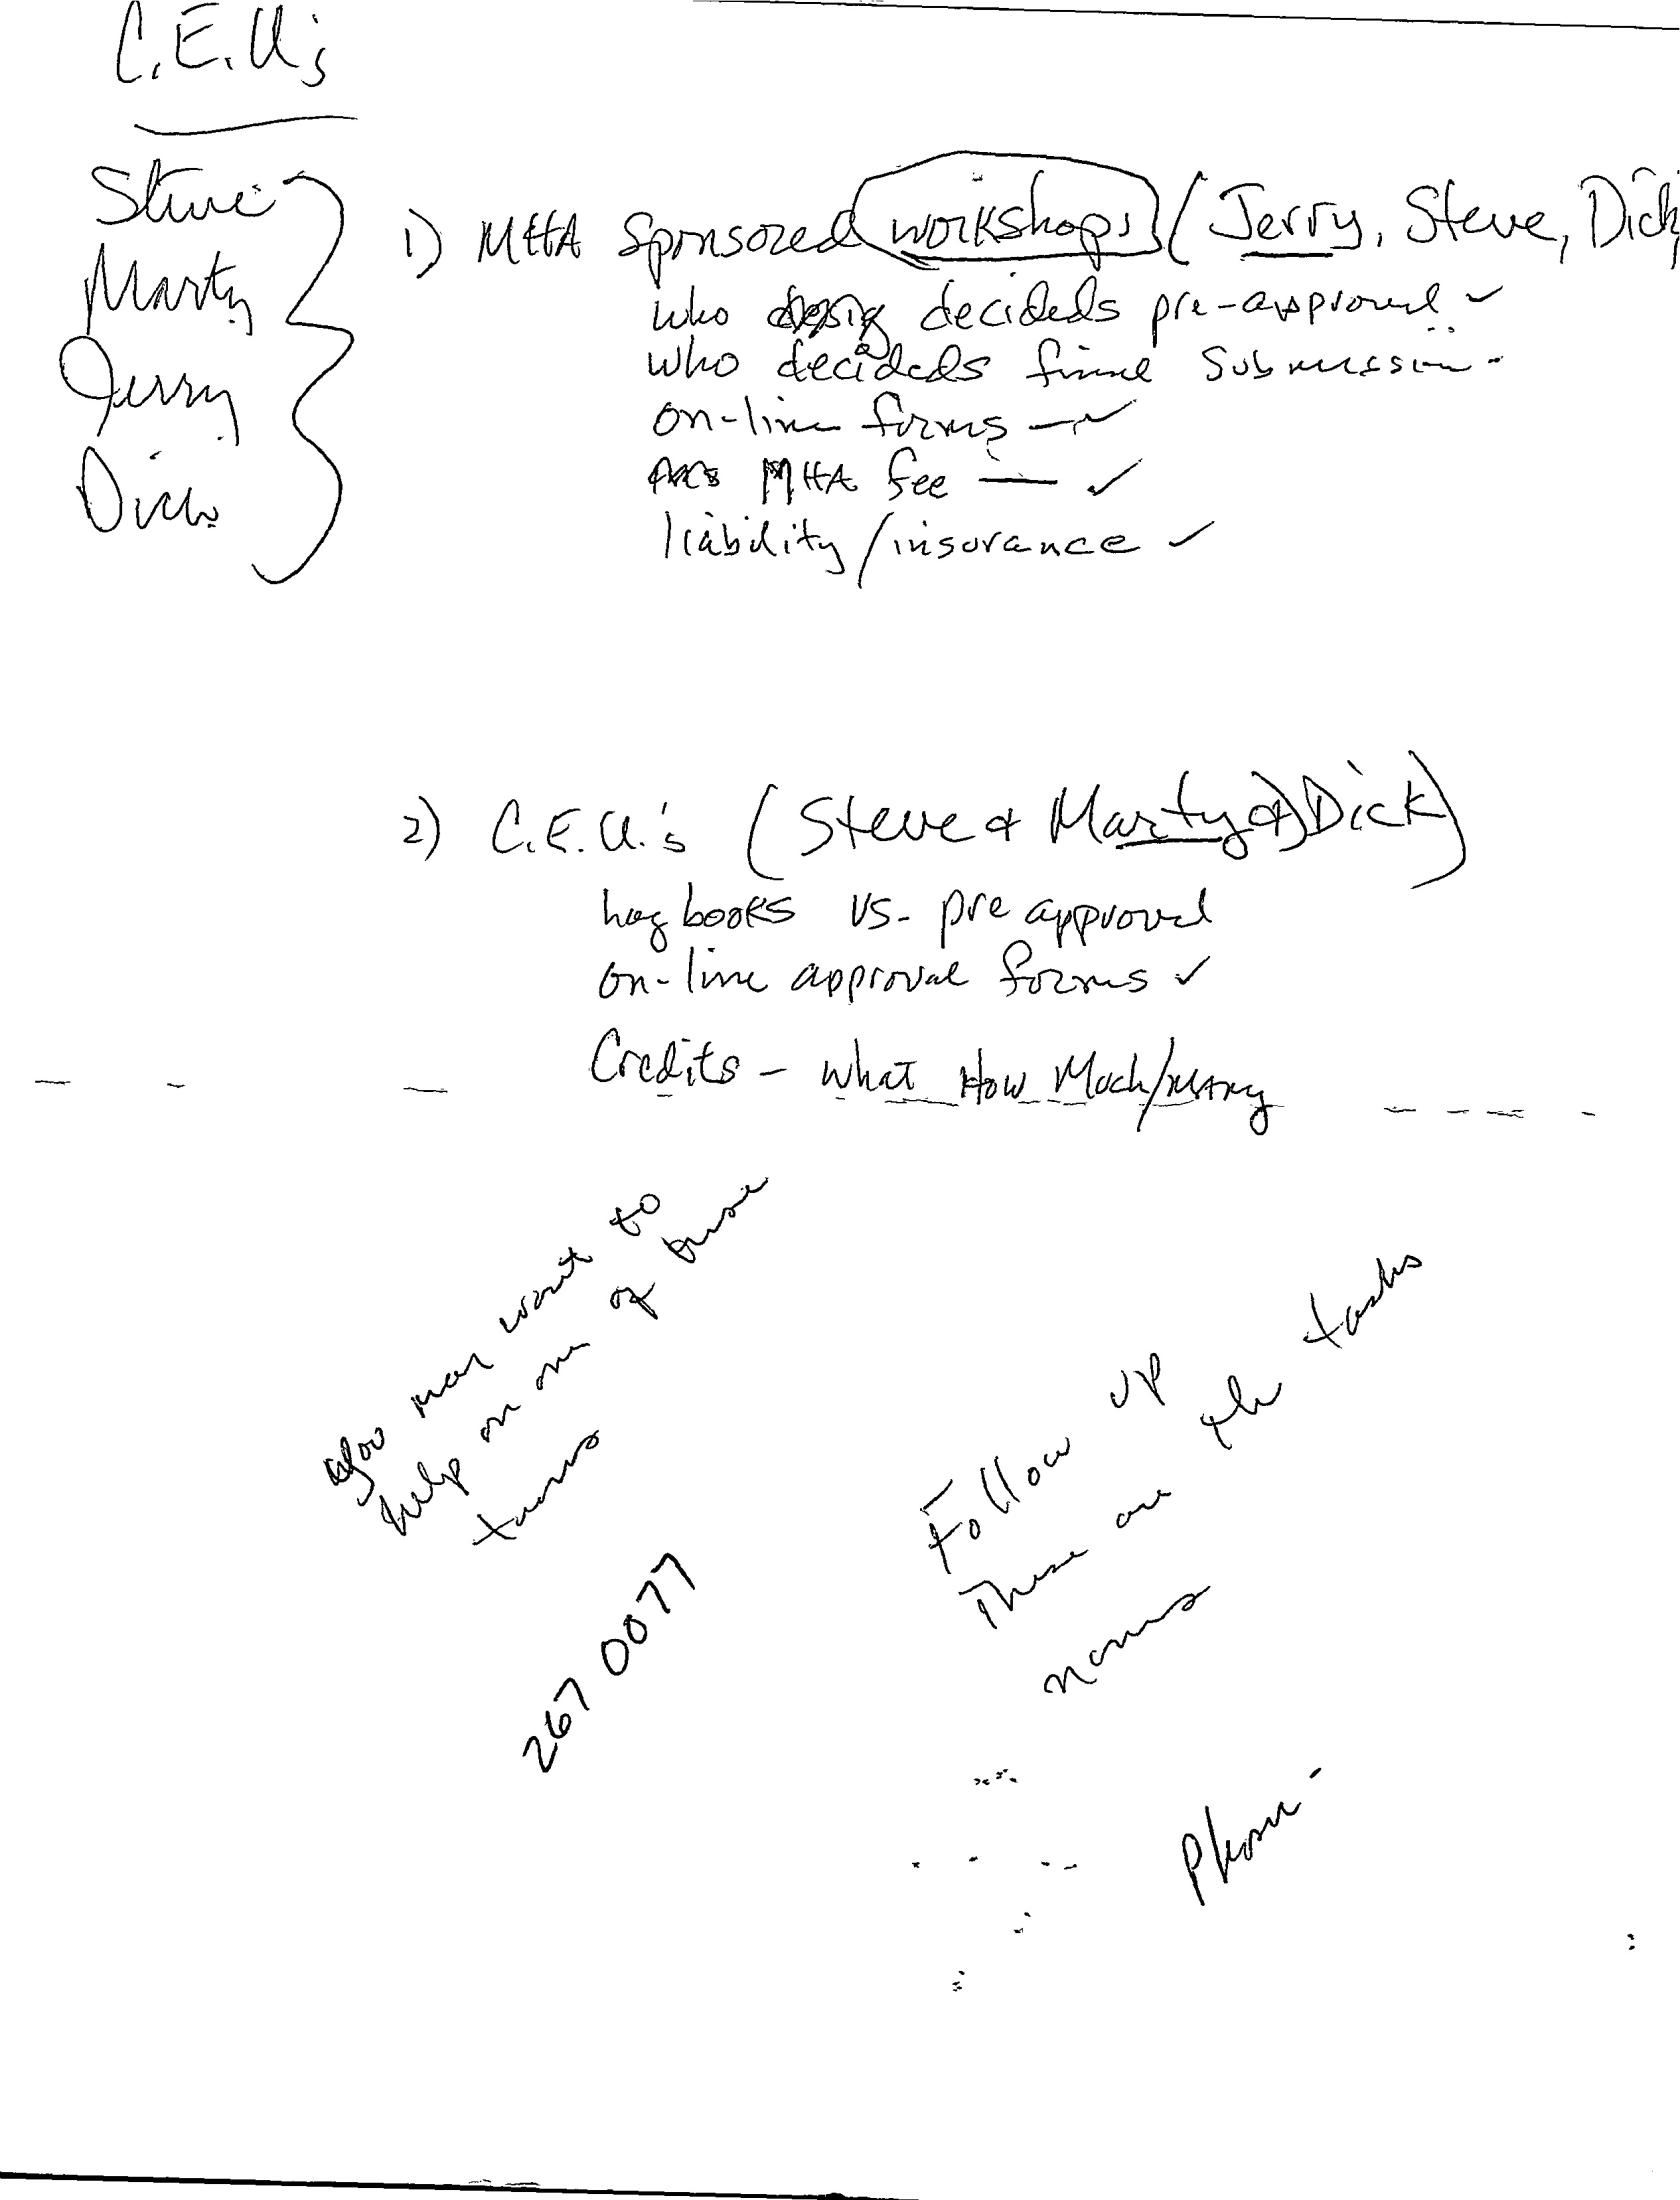 C.E.U.'s
Steve
Marty
Jerry
Dick
1) MHA Sponsored workshops (Jerry, Steve, Dick
who decideds pre-approved ✓
who decideds final submission -
on-line forms — ✓
MHA fee — ✓
liability/insurance ✓
2) C.E.U.'s (Steve & Marty &) Dick)
log books vs. pre approval
on-line approval forms ✓
Credits - what How Much/Many
you may want to
help on one of these
teams
267 0077
Follow up
These are the tasks
names
Phone